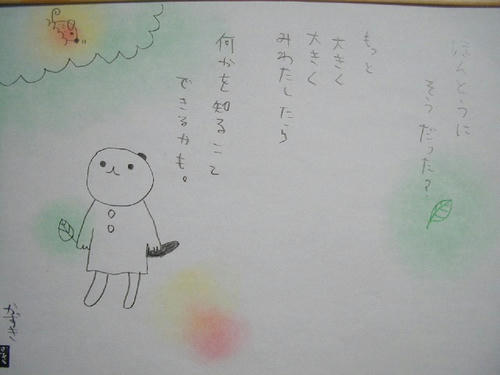 ほんとうに
そうだった?
もっと
大きく
大きく
みわたしたら
何かを知ること
できるかも。